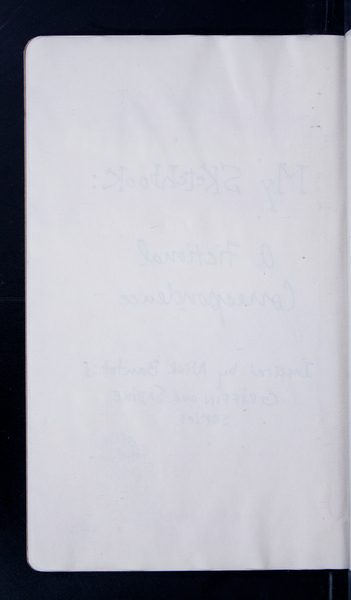 My Sketchbook:
A Fictional
Correspondence
Inspired by Nick Bantock's
Griffin and Sabine
series